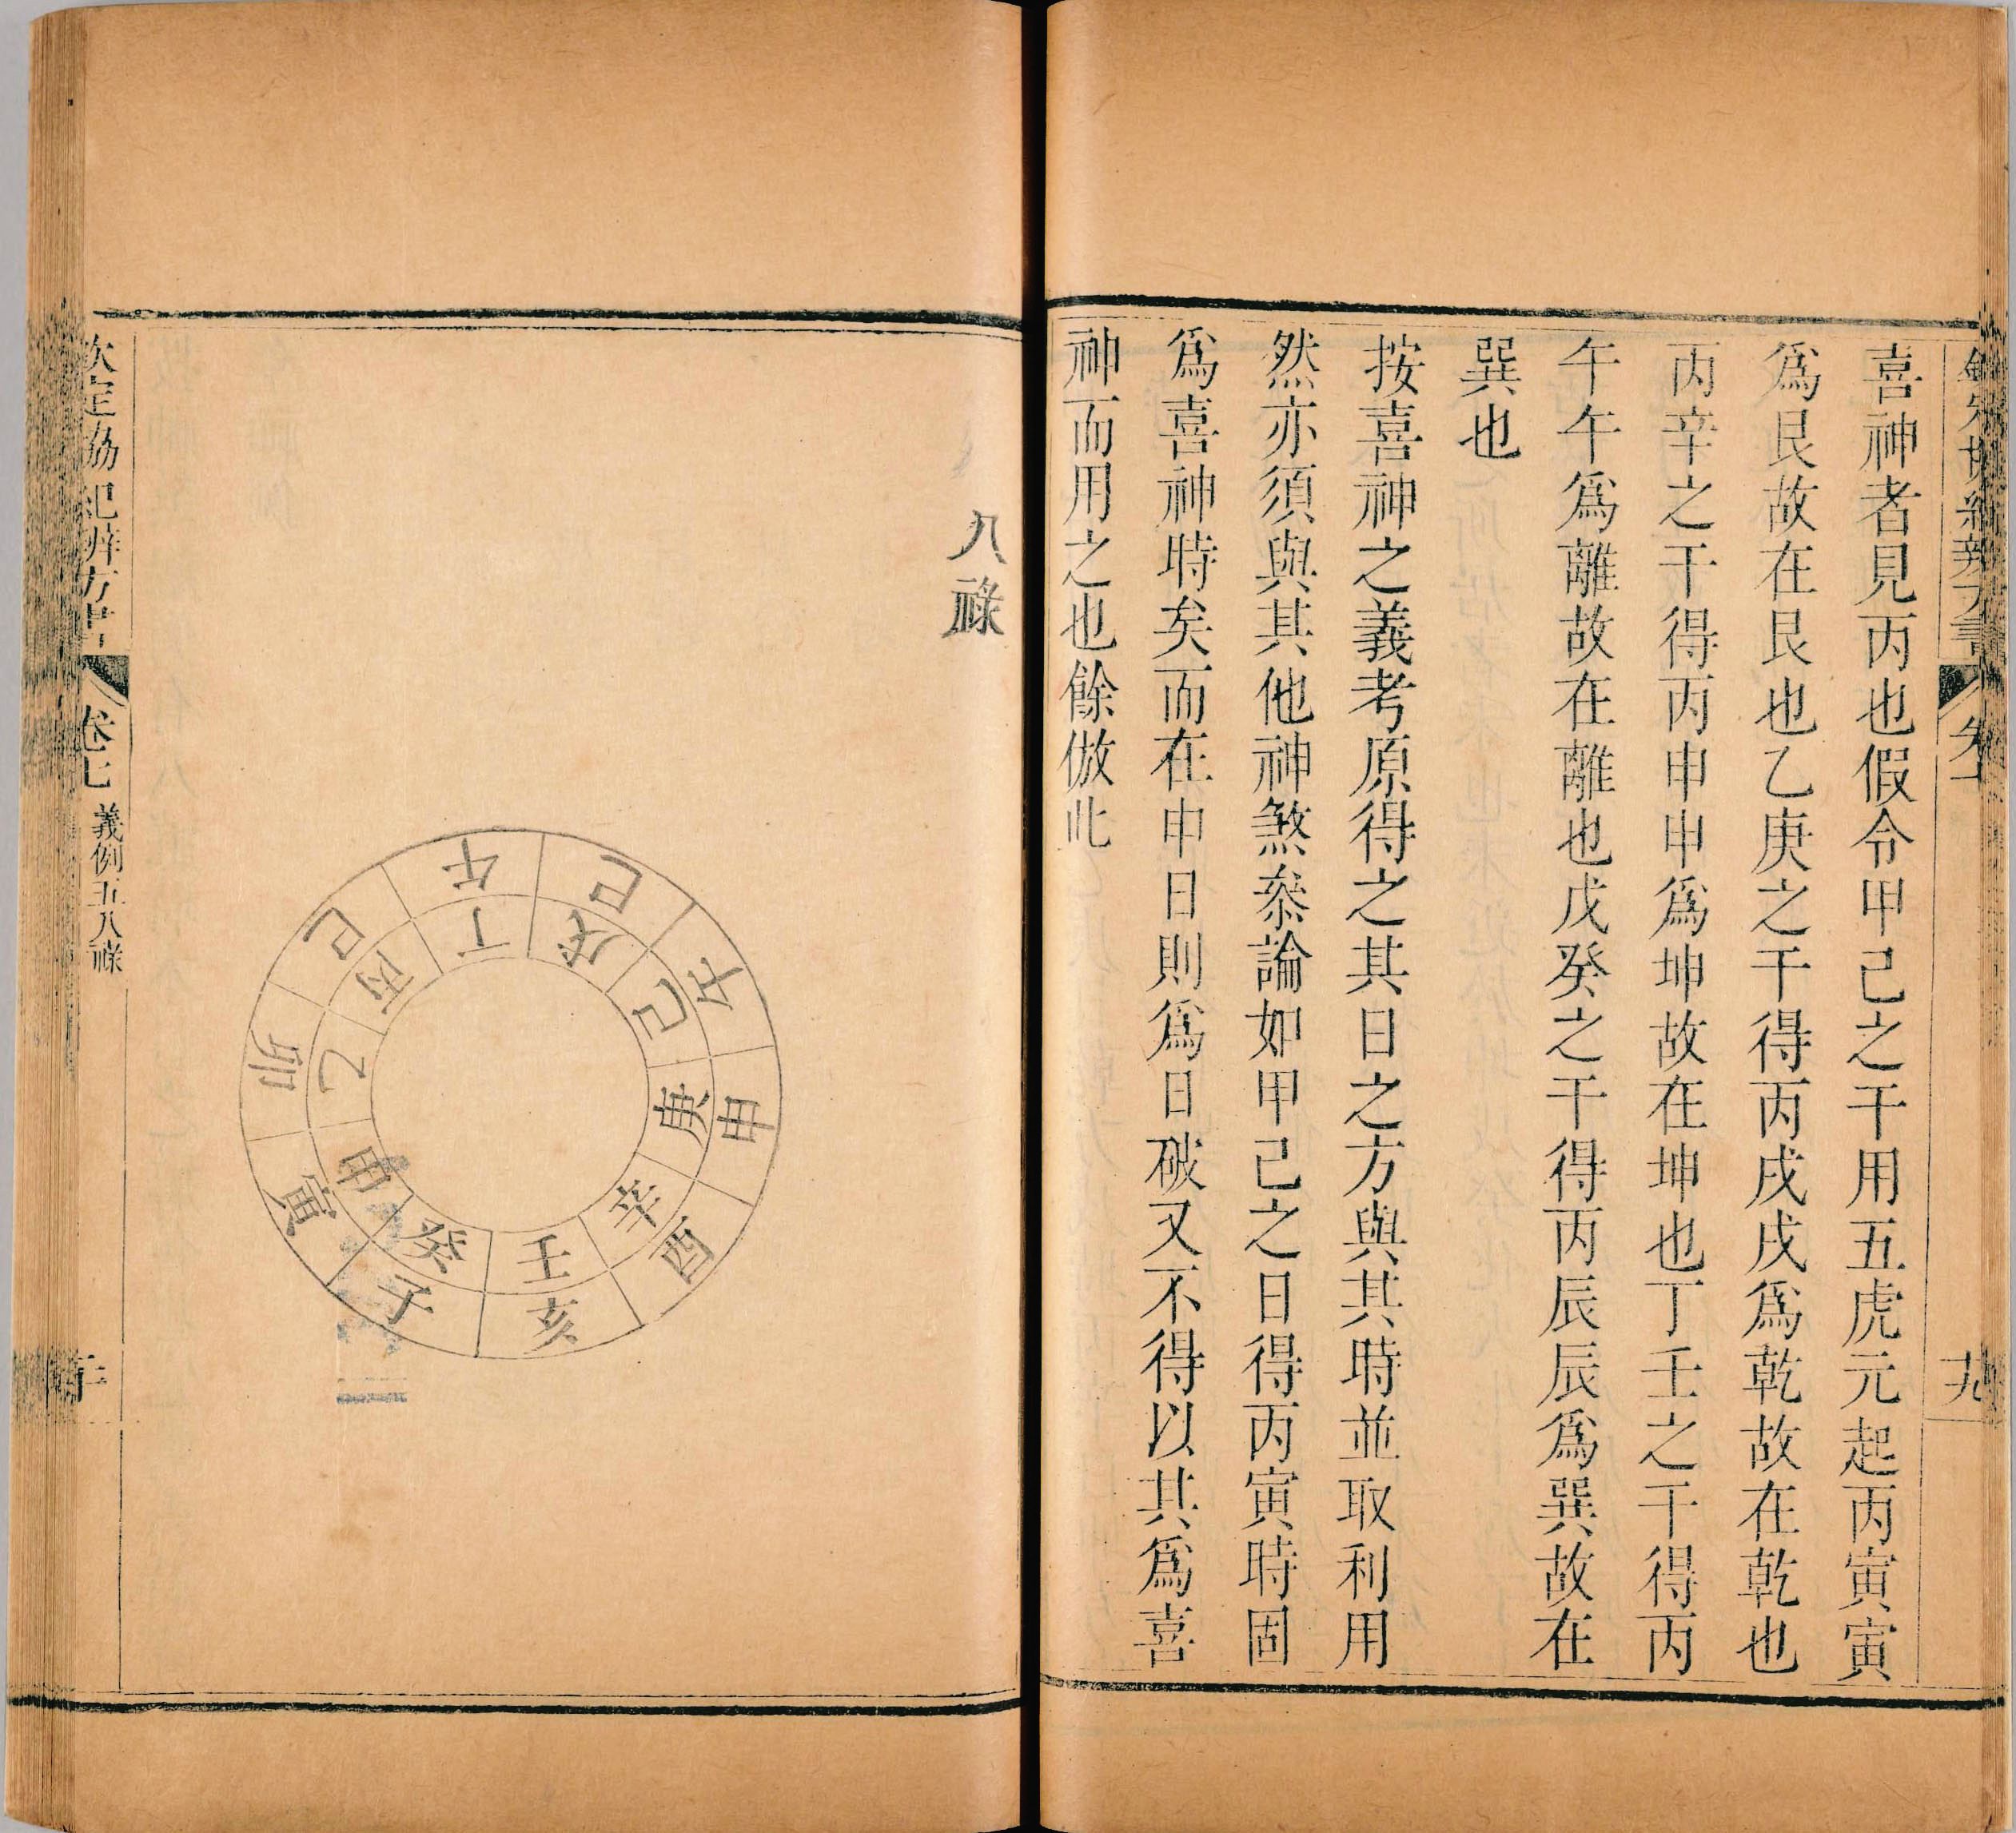 喜神者見丙也假令甲己之干用五虎元起丙寅寅
爲艮故在艮也乙庚之干得丙戌戌爲乾故在乾也
丙辛之干得丙申申爲坤故在坤也丁壬之干得丙
午午爲離故在離也戊癸之干得丙辰辰爲巽故在
巽也
按喜神之義考原得之其日之方與其時並取利用
然亦須與其他神煞叅論如甲己之日得丙寅時固
爲喜神時矣而在申日則爲日破又不得以其爲喜
神而用之也餘倣此
十九
八祿
午
巳
午
申
酉
亥
子
寅
卯
巳
丁
戊
己
庚
辛
壬
癸
甲
乙
丙
欽定協紀辨方書
卷七
義例五八祿